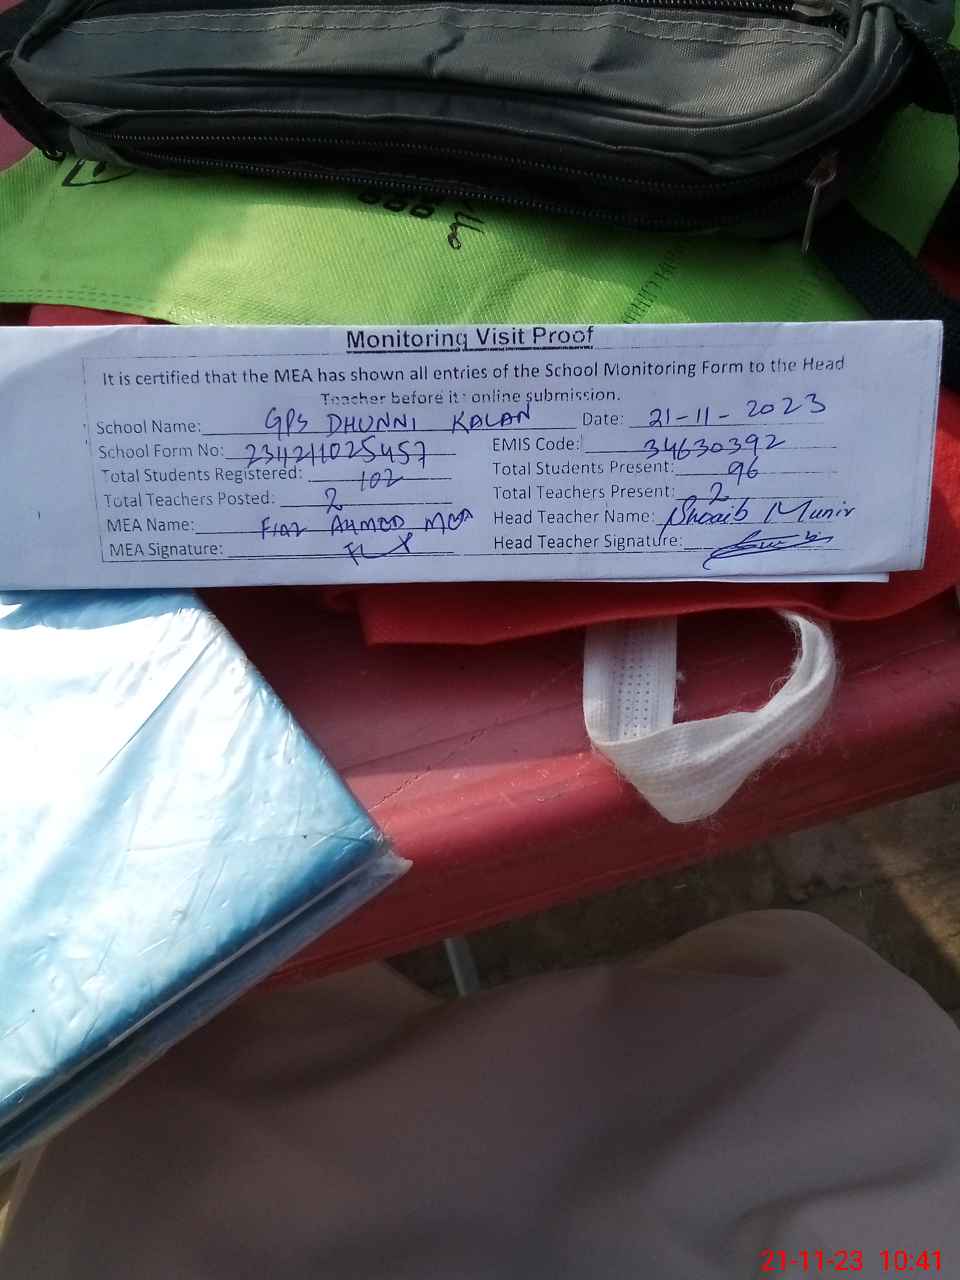 Monitoring Visit Proof
It is certified that the MEA has shown all entries of the School Monitoring Form to the Head
Teacher before it: online submission.
School Name: GPS DHUNNI KALAN Date: 21-11-2023
School Form No: 2311211025457 EMIS Code: 34630392
Total Students Registered: 102 Total Students Present: 96
Total Teachers Posted: 2 Total Teachers Present: 2
MEA Name: Fiaz AHMED MEA Head Teacher Name: Shoaib Munir
MEA Signature: Head Teacher Signature:
21-11-23 10:41